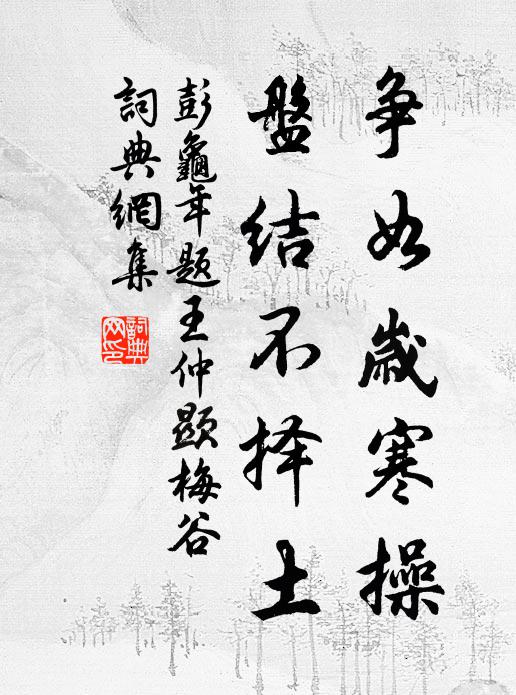 争如歲寒操
盤结不择土
彭龜年题王仲顕梅谷
詞典網集
詞典
网印